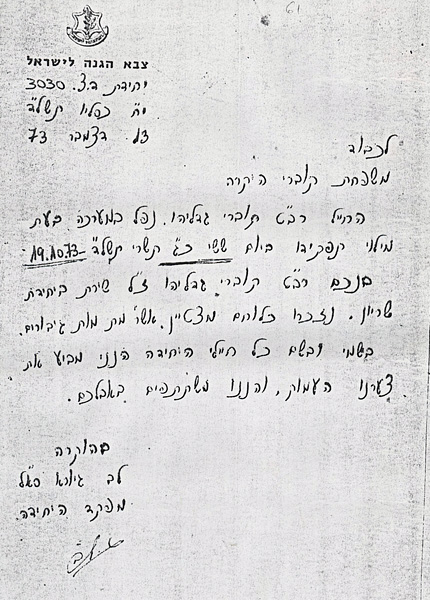 61
צבא הגנה לישראל
יחידת ד.צ. 3030
י"ח כסליו תשל"ד
13 דצמבר 73
לכבוד
משפחת תוברי היקרה
החייל רב"ט תוברי גדליהו. נפל במערכה בעת
מילוי תפקידו ביום ששי כ"ג תשרי תשל"ד - 19.10.73
בנכם רב"ט תוברי גדליהו ז"ל שירת ביחידת
שריון. נזכרו כלוחם מצטיין. אשר מת מות גיבורים.
בשמי ובשם כל חיילי היחידה הנני מביע את
צערנו העמוק, והננו משתתפים באבלכם.
בהוקרה
גיורא
מפקד היחידה